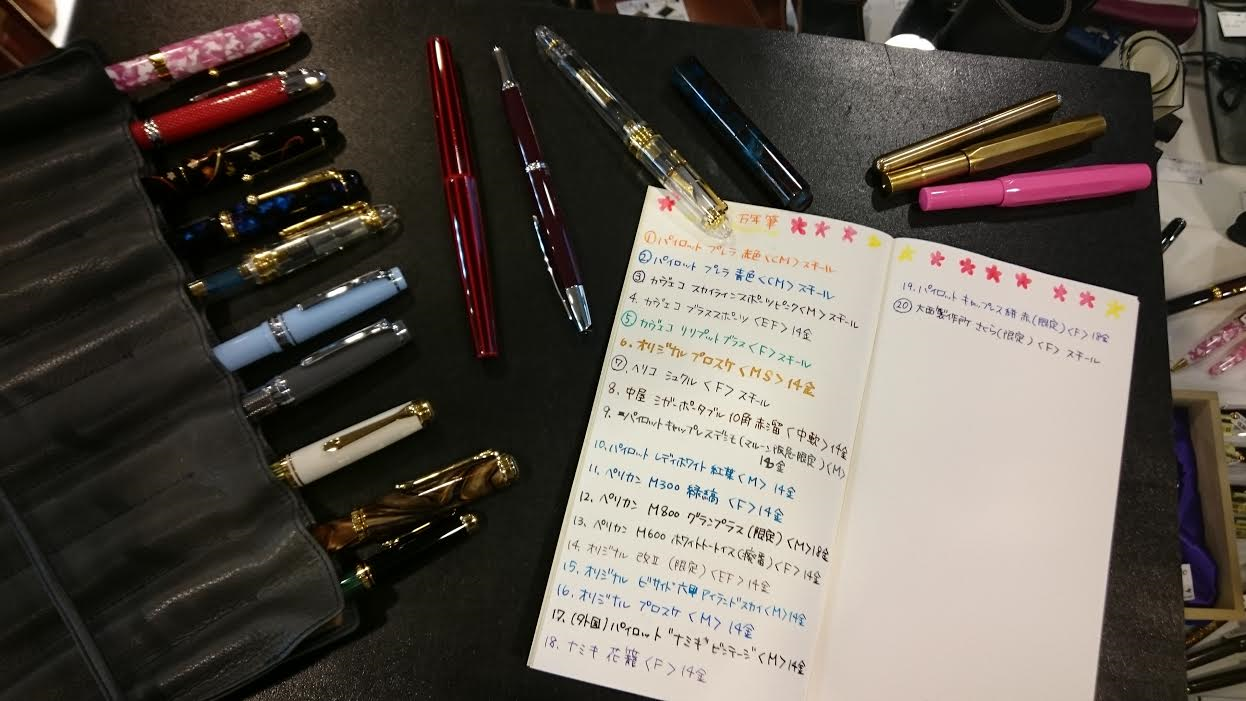 万年筆
① パイロット プレラ 赤色 <CM> スチール
② パイロット プレラ 青色 <CM> スチール
③ カヴェコ スカイラインスポーツピンク<M> スチール
4. カヴェコ ブラススポーツ <EF> 14金
⑤ カヴェコ リリプットブラス <F> スチール
6. オリジナル プロスケ <MS> 14金
⑦. ペリコ シュクル <F> スチール
8. 中屋 シガーポータブル 10角 赤溜 <中軟> 14金
9. パイロット キャップレスデシモ(マルーン 限定) <M>
18金
10. パイロット レディホワイト 紅葉 <M> 14金
11. ペリカン M300 緑縞 <F> 14金
12. ペリカン M800 グランプラス (限定) <M> 18金
13. ペリカン M600 ホワイトトートイズ (廃番) <F> 14金
14. オリジナル 改Ⅱ (限定) <EF> 14金
15. オリジナル ビサイド 六甲アイランドスカイ <M> 14金
16. オリジナル プロスケ <M> 14金
17. (外国) パイロット "ナミキ" ビンテージ <M> 14金
18. ナミキ 花籠 <F> 14金
19. パイロット キャップレス 絣 赤 (限定) <F> 18金
⑳ 大西製作所 さくら (限定) <F> スチール